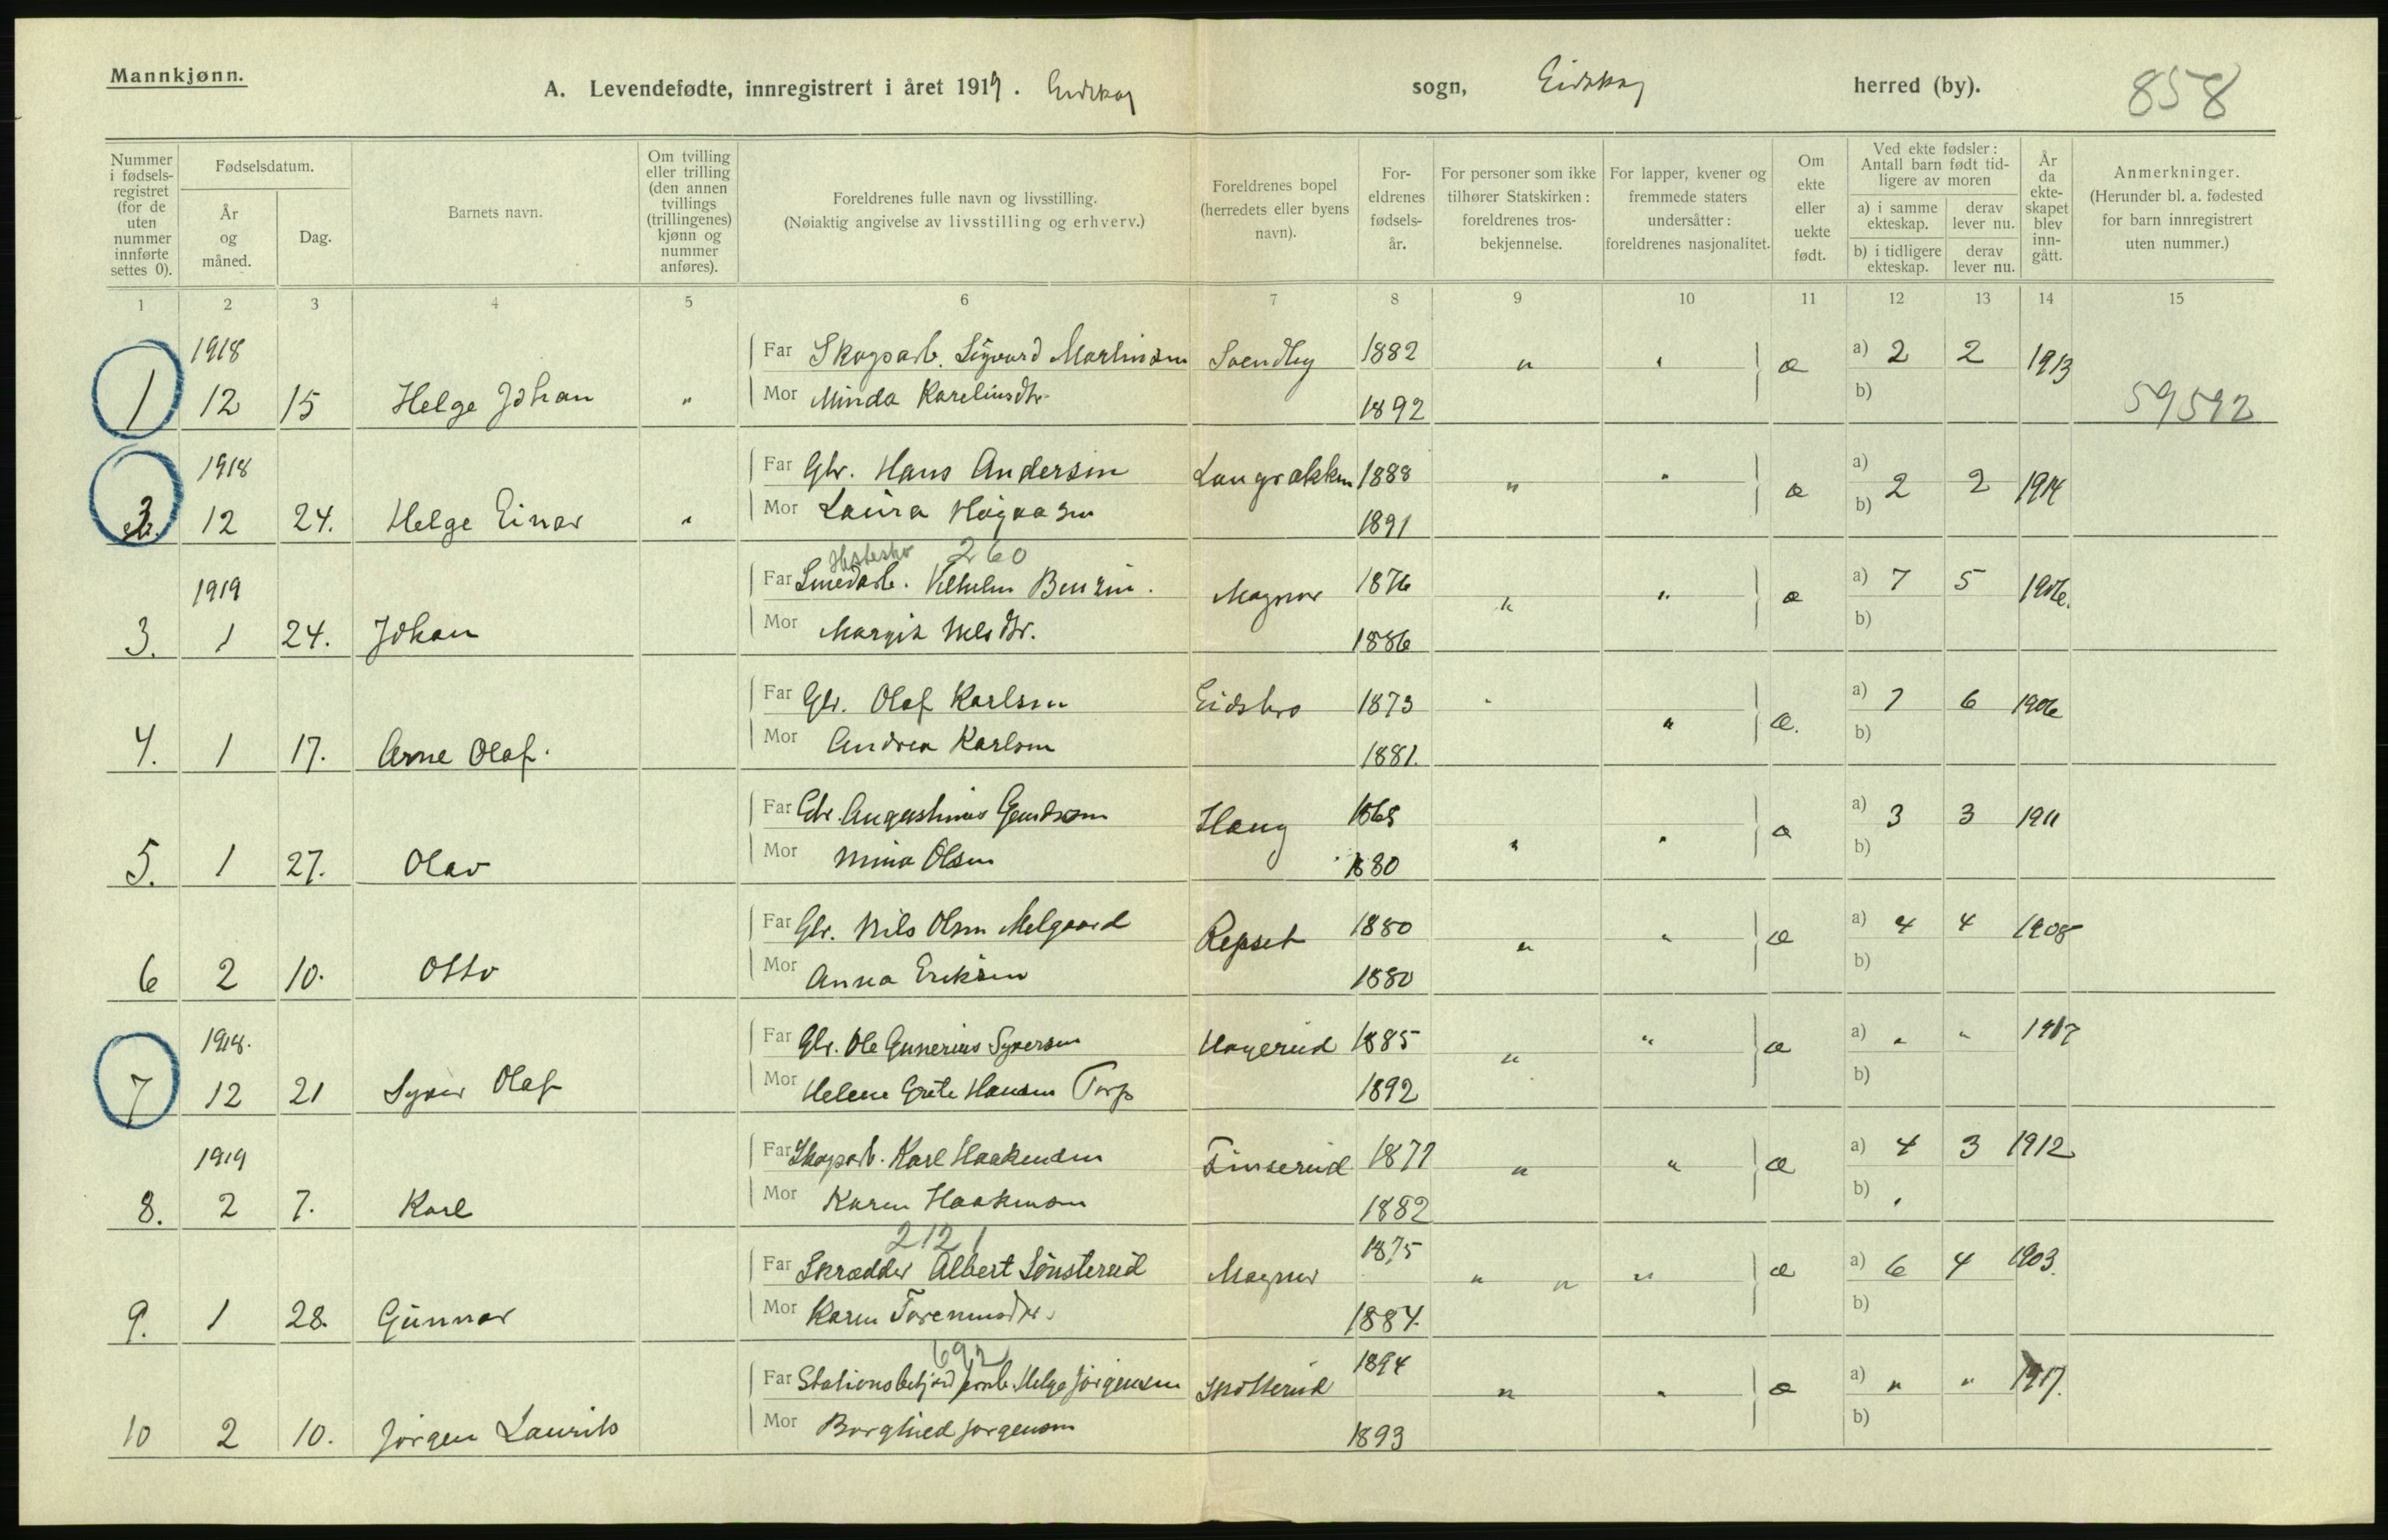 Mannkjønn.
A. Levendefødte, innregistrert i året 1919. Eidskog sogn, Eidskog herred (by). 858
Nummer i fødselsregistret (for de uten nummer innførte settes 0).
Fødselsdatum.
År og måned.
Dag.
Barnets navn.
Om tvilling eller trilling (den annen tvillings (trillingenes) kjønn og nummer anføres).
Foreldrenes fulle navn og livsstilling.
(Nøiaktig angivelse av livsstilling og erhverv.)
Foreldrenes bopel (herredets eller byens navn).
Foreldrenes fødselsår.
For personer som ikke tilhører Statskirken: foreldrenes trosbekjennelse.
For lapper, kvener og fremmede staters undersåtter: foreldrenes nasjonalitet.
Om ekte eller uekte født.
Ved ekte fødsler: Antall barn født tidligere av moren
a) i samme ekteskap.
derav lever nu.
b) i tidligere ekteskap.
derav lever nu.
År da ekteskapet blev inngått.
Anmerkninger.
(Herunder bl. a. fødested for barn innregistrert uten nummer.)
1 2 3 4 5 6 7 8 9 10 11 12 13 14 15
1918 Far Skogsarb. Sigvard Martinsen 1882 " " æ a) 2 2 1913
1 12 15 Helge Johan " Mor Minda Kareliusdtr. 1892 b) 59592
1918 Far Gbr. Hans Andersen Langrækken 1888 " " æ a)
2. 12 24. Helge Einar " Mor Laura 1891 b) 2 2 1914
260
1919 Far Smedarb. Vilhelm Magnor 1876 " " æ a) 7 5 1906.
3. 1 24. Johan Mor Margit Nilsdtr. 1886 b)
Far Gbr. Olaf Karlsen 1873 " " æ. a) 7 6 1906
4. 1 17. Arne Olaf. Mor Andrea Karlsen 1881. b)
Far Gbr. Augustinus Haug 1868 " " æ a) 3 3 1911
5. 1 27. Olav Mor Mina Olsen 1880 b)
Far Gbr. Nils Olsen Melgaard Repset 1880 " " æ a) 4 4 1908
6 2 10. Otto Mor Anna Eriksen 1880 b)
1918. Far Gbr. Ole Gunerius Syversen 1885 " " æ a) " " 1917
7 12 21 Syver Olaf Mor Helene Grete Hansen Torp 1892 b)
1919 Far Skogsarb. Karl Haakensen Finserud 1877 " " æ a) 4 3 1912
8. 2 7. Karl Mor Karen Haakensen 1882 b) "
2121
Far Skrædder Albert Sønsterud Magnor 1875 " " " æ a) 6 4 1903.
9. 1 28. Gunnar Mor Karen 1884. b)
692
Far Stationsbetjent Helge Jørgensen Skotterud 1894 " " æ a) " " 1917.
10 2 10. Jørgen Laurits Mor Borghild Jørgensen 1893 b)